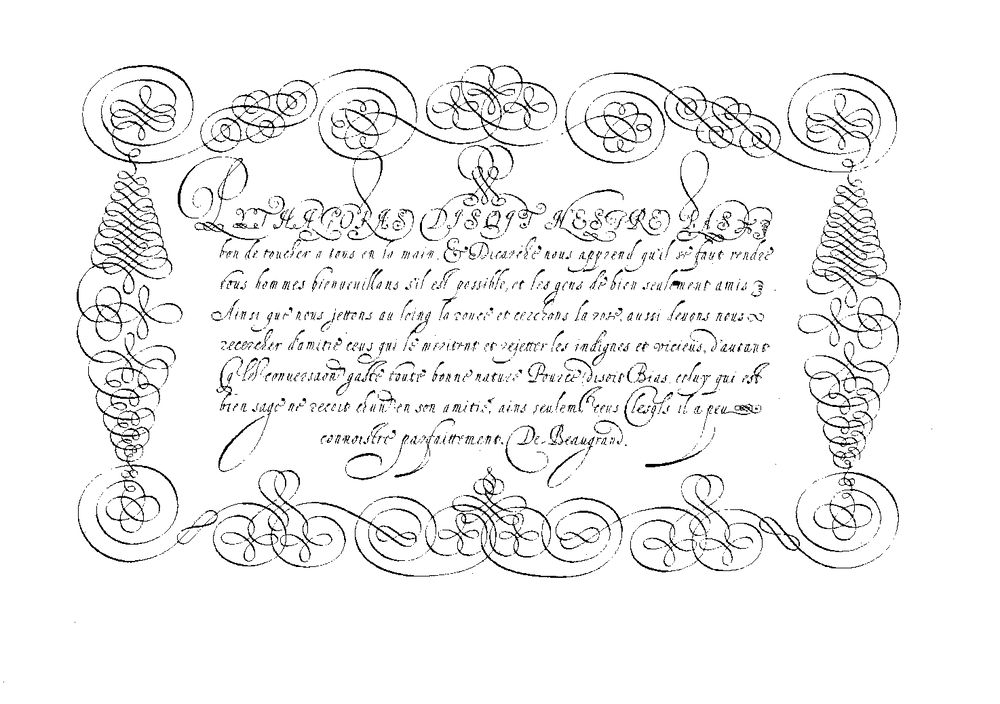 PYTHAGORAS DISOIT N'ESTRE PAS
bon de toucher a tous en la main, & Dicarche nous apprend qu'il se faut rendre
tous hommes bienueuillans s'il est possible, et les gens de bien seulement amis
Ainsi que nous jettons au loing la ronce et cerchons la rose, aussi deuons nous
recercher d'amitie ceus qui le meritent et rejetter les indignes et vicieus, d'autant
q̃ les conuersaõn gaste toute bonne nature Pource disoit Bias, celuy qui est
bien sage ne recoit chũn en son amitie, ains seulemt̃ ceus lesq̃ls il a peu
connoistre parfaittement. De Beaugrand.